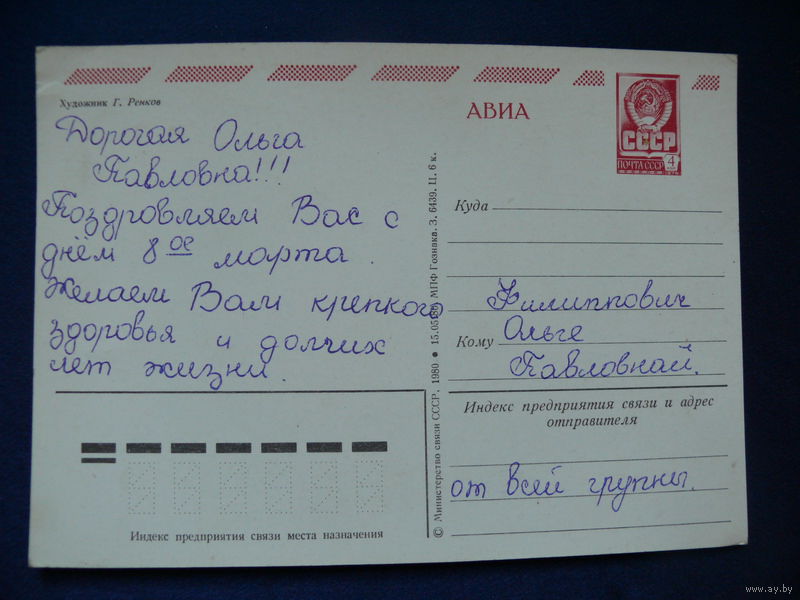 Художник Г. Ренков
Дорогая Ольга
Павловна!!!
Поздровляем Вас с
днём 8 ое марта.
Желаем Вам крепкого
здоровья и долгих
лет жизни.
Индекс предприятия связи места назначения
© Министерство связи СССР, 1980 • 15.05.80. МПФ Гознака. З. 6439. Ц. 6 к.
АВИА
СССР
ПОЧТА СССР 4
Куда
Филиппович
Кому Ольге
Павловнай.
Индекс предприятия связи и адрес
отправителя
от всей группы.
www.ay.by